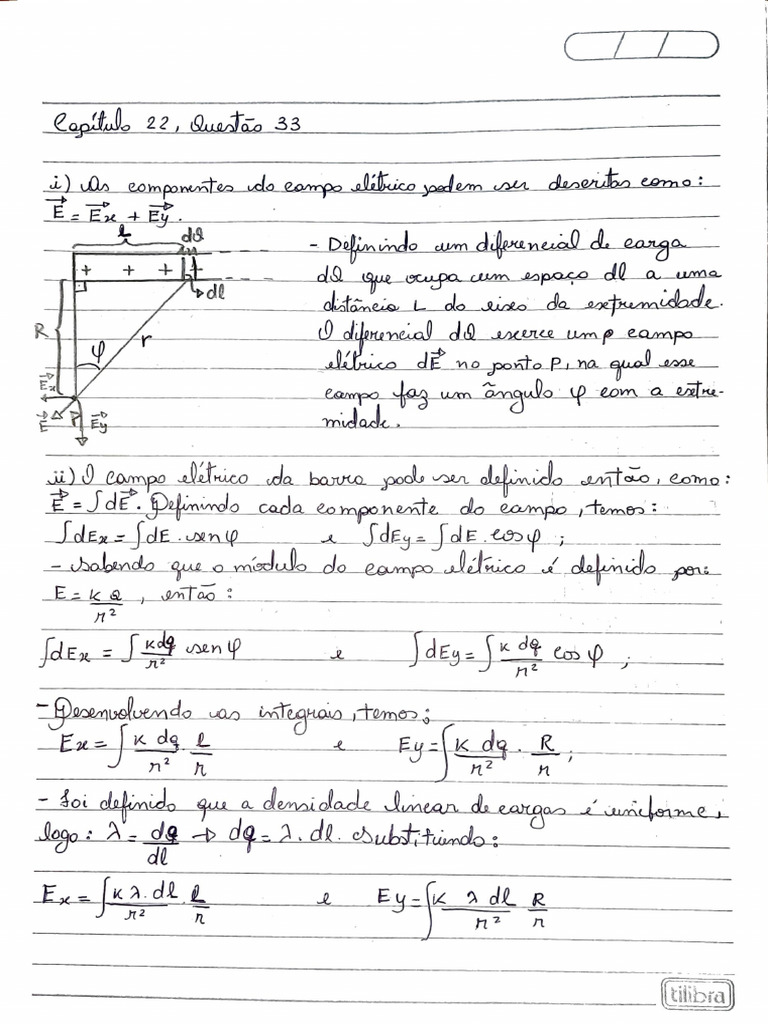 Capítulo 22, Questão 33
i) As componentes do campo elétrico podem ser descritas como:
E⃗ = E⃗x + E⃗y.
l
dQ
+ + + +
dl
R
φ
r
E⃗x
E⃗
P
E⃗y
- Definindo um diferencial de carga
dQ que ocupa um espaço dl a uma
distância L do eixo da extremidade.
O diferencial dQ exerce um campo
elétrico dE⃗ no ponto P, na qual esse
campo faz um ângulo φ com a extre-
midade.
ii) O campo elétrico da barra pode ser definido então, como:
E⃗ = ∫dE⃗. Definindo cada componente do campo, temos:
∫dEx = ∫dE . sen φ e ∫dEy = ∫dE . cos φ ;
- Sabendo que o módulo do campo elétrico é definido por:
E = k Q / r², então:
∫dEx = ∫ k dq / r² sen φ e ∫dEy = ∫ k dq / r² cos φ ;
- Desenvolvendo as integrais, temos:
Ex = ∫ k dq / r² . l / r e Ey = ∫ k dq / r² . R / r ;
- Foi definido que a densidade linear de cargas é uniforme,
logo: λ = dq / dl → dq = λ . dl. Substituindo:
Ex = ∫ k λ . dl / r² . l / r e Ey = ∫ k λ dl / r² R / r
tilibra